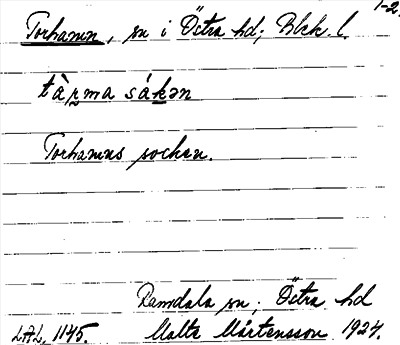 1-2.
Torhamn, sn i Östra hd; Blek. l.
tàrma sákən
Torhamns socken.
Ramdala sn; Östra hd
LAL, 1145. Malte Mårtensson 1924.